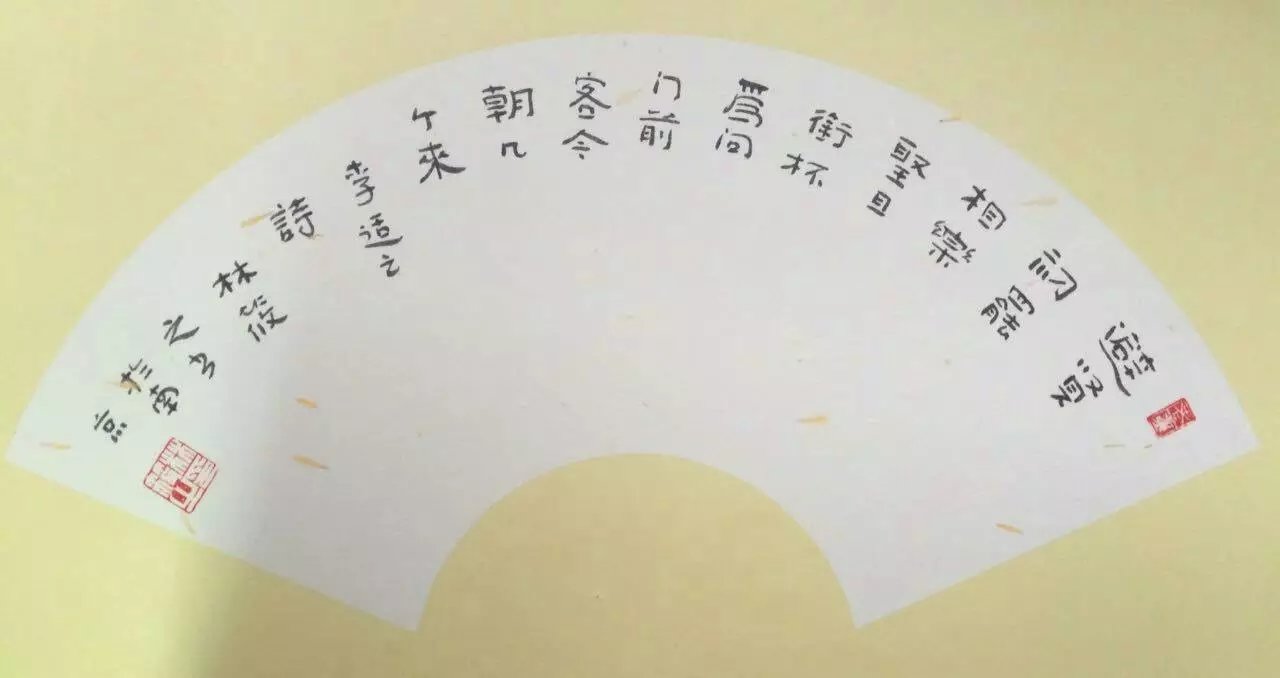 避賢
初罷
相樂
聖且
銜杯
爲問
门前
客今
朝几
个來
李适之
詩
林筱
之书
於南
京